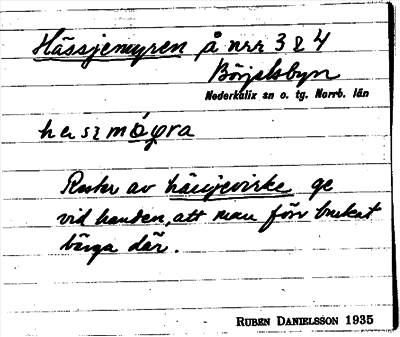 Hässjemyren å nrr 3 & 4
Börjelsbyn
Nederkalix sn o. tg. Norrb. län
Rester av hässjevirke ge
vid handen, att man förr brukat
bärga där.
RUBEN DANIELSSON 1935